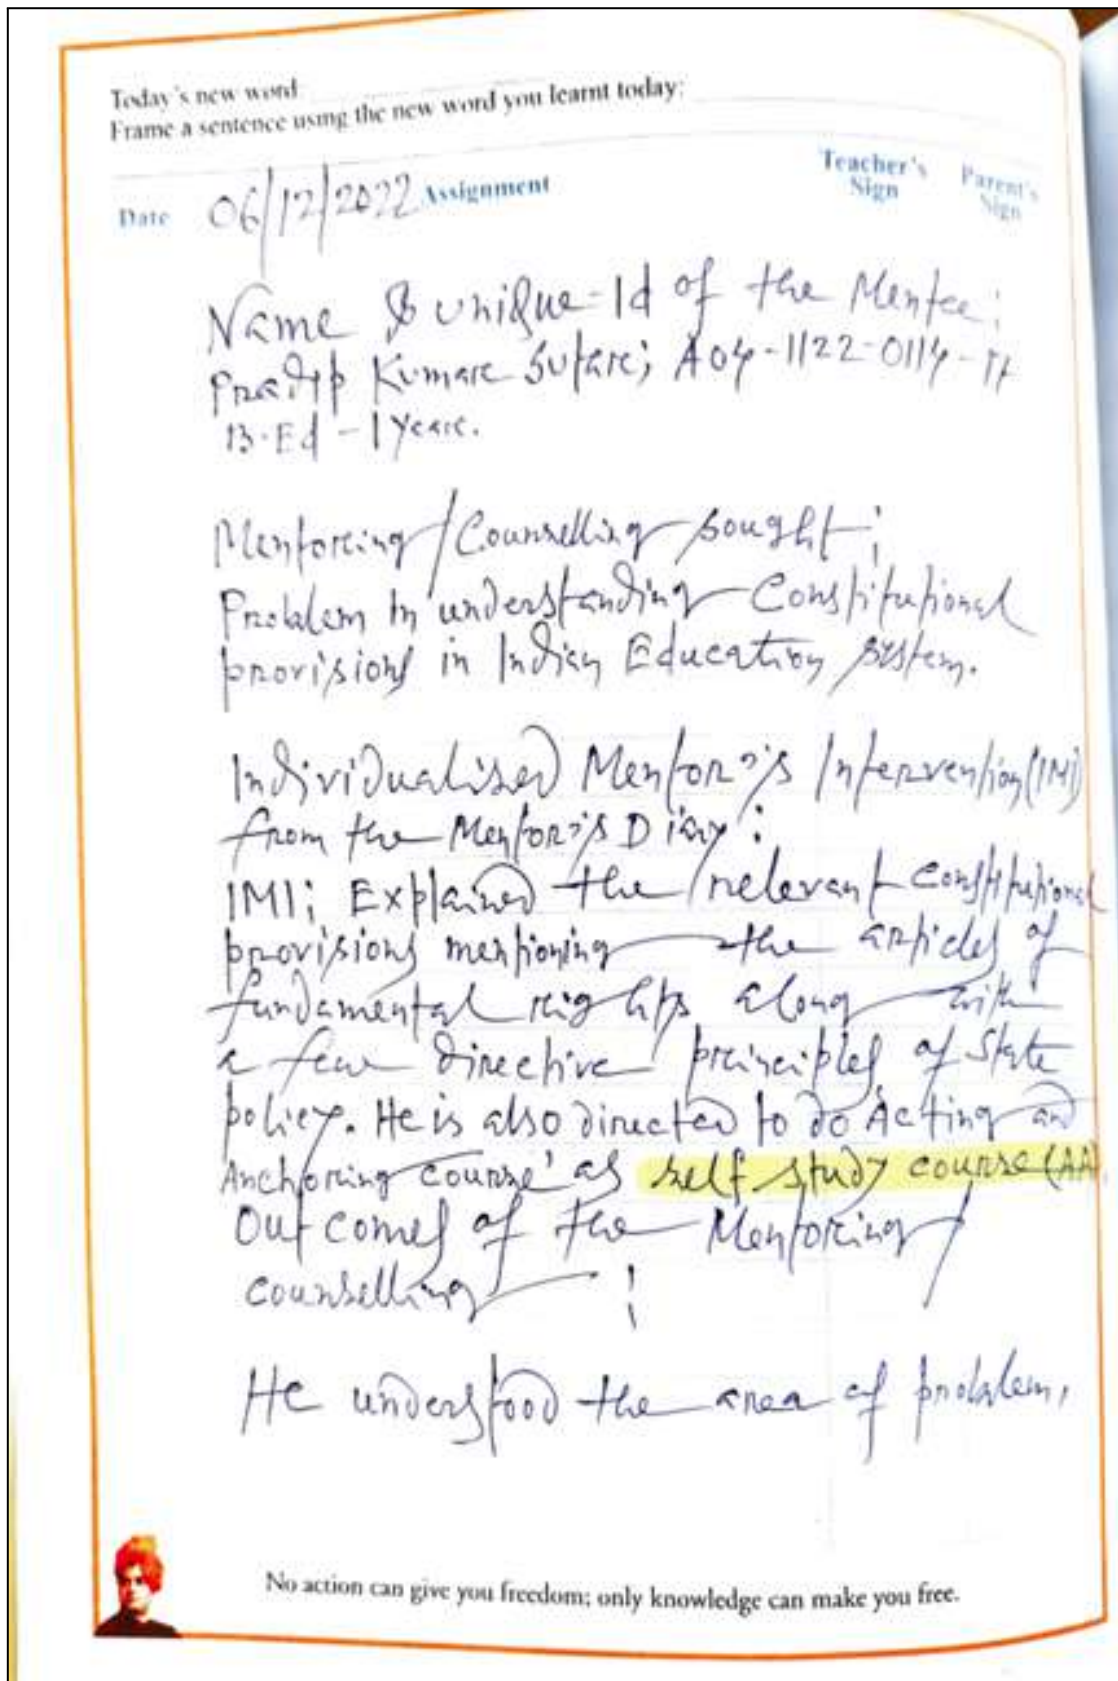 Today's new word
Frame a sentence using the new word you learnt today:
Teacher's Sign
Parent's Sign
Date 06/12/2022 Assignment
Name & unique-Id of the Mentee;
Pradip Kumar Sutar; A04-1122-0114-
B.Ed - 1 Year.
Mentoring/Counselling sought;
Problem in understanding Constitutional
provisions in Indian Education system.
Individualised Mentor's Intervention (IMI)
from the Mentor's Diary:
IMI; Explained the relevant constitutional
provisions mentioning the articles of
fundamental rights along with
a few directive principles of State
policy. He is also directed to do Acting and
Anchoring course' as self study course (AA)
Outcomes of the Mentoring/
counselling;
He understood the area of problem,
No action can give you freedom; only knowledge can make you free.